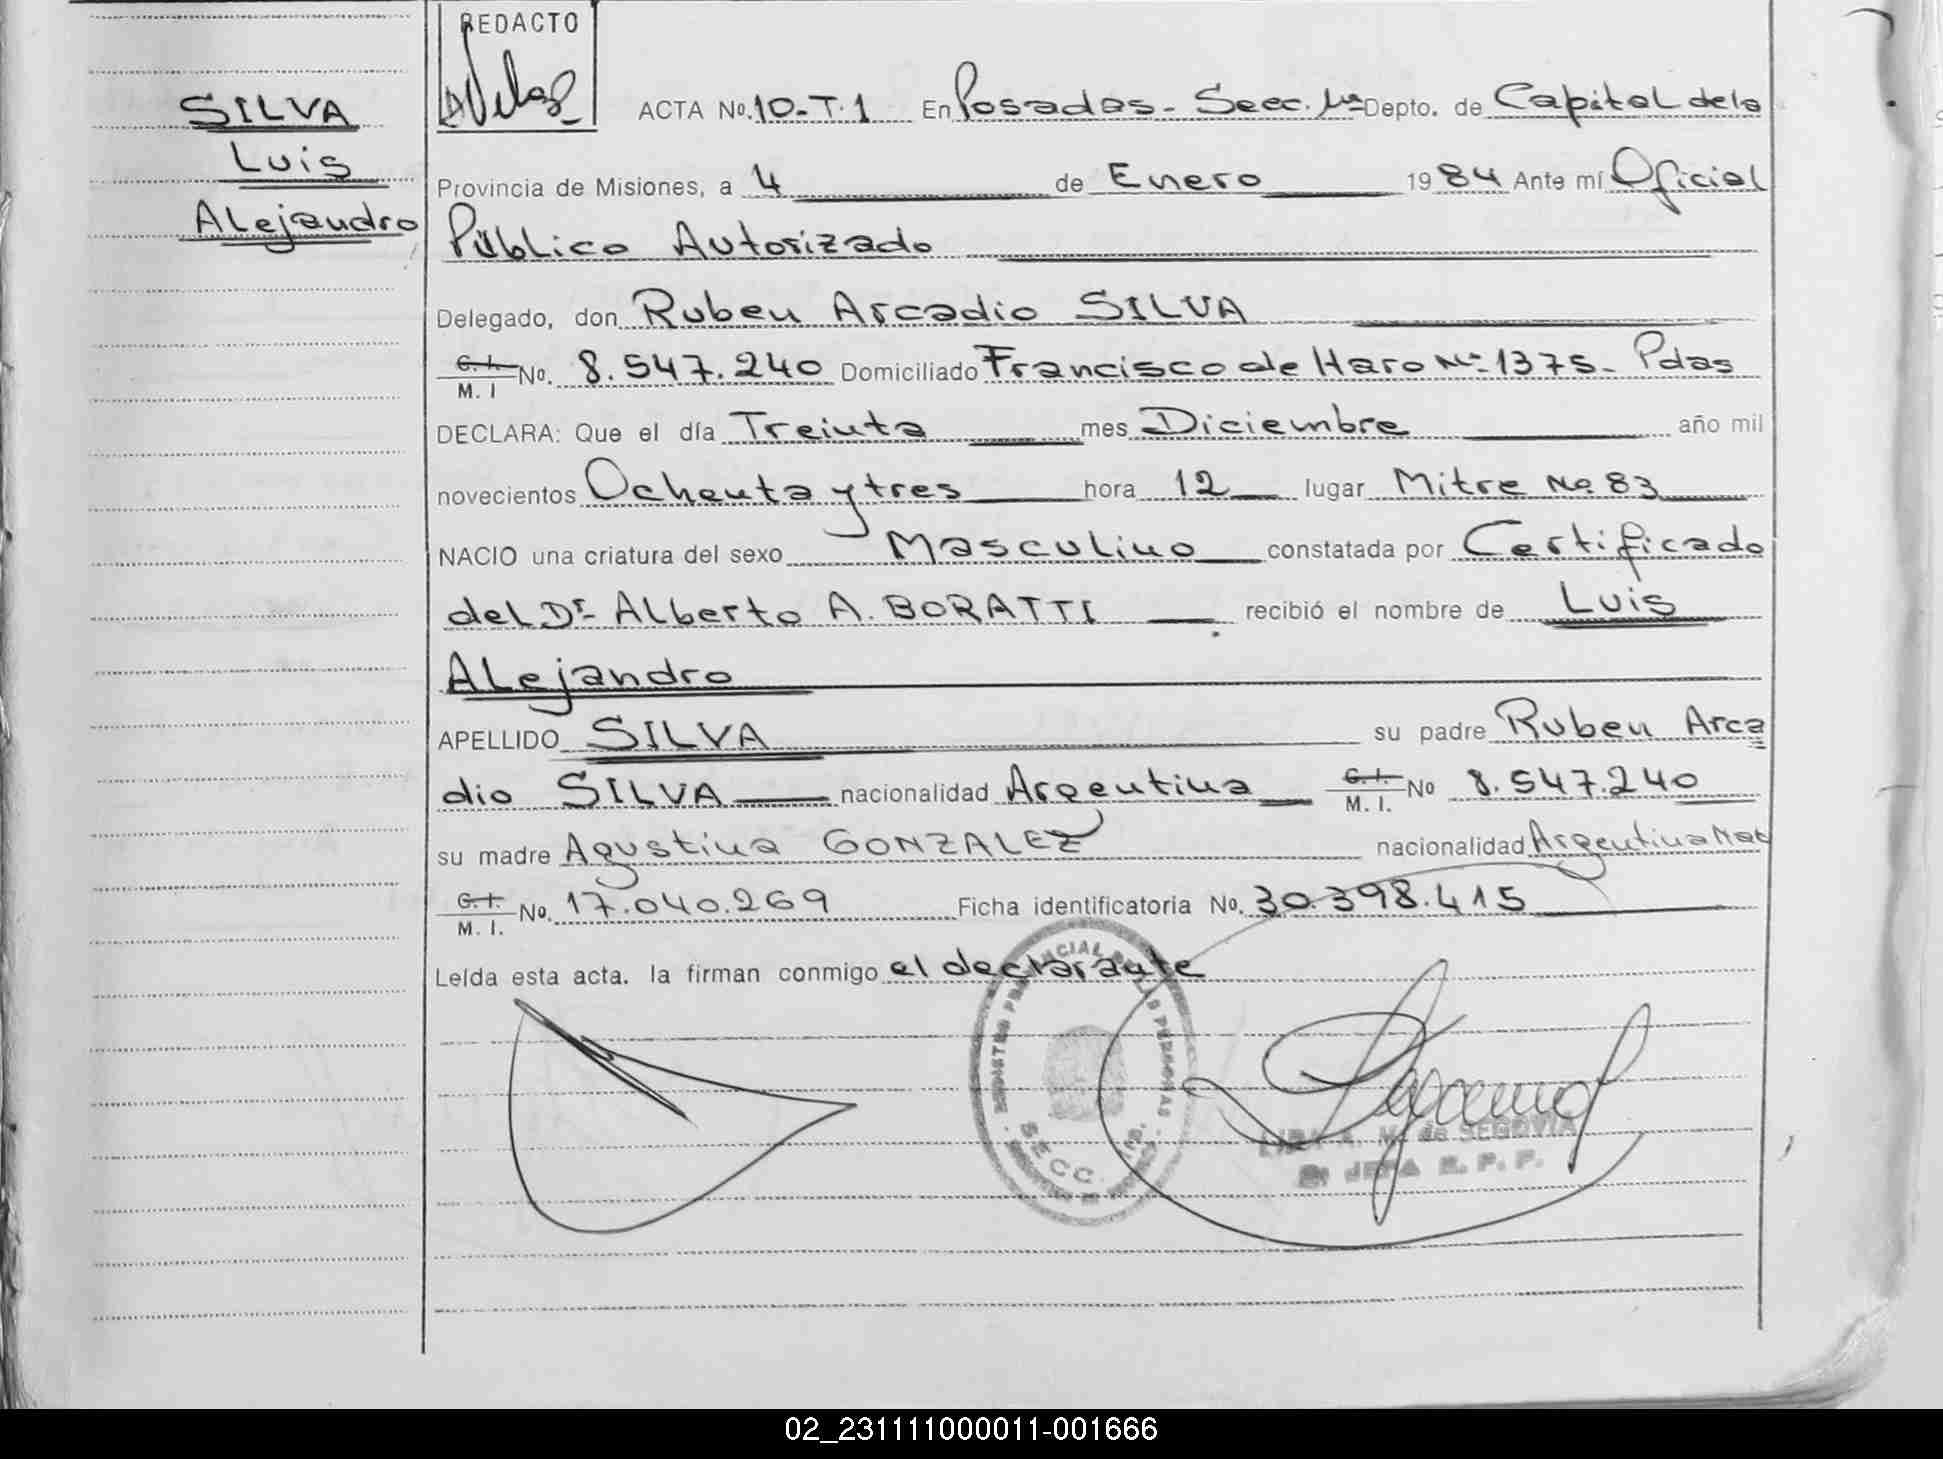 REDACTO
SILVA
Luis
Alejandro
ACTA No. 10-T.1 En Posadas - Secc. 1ª Depto. de Capital de la
Provincia de Misiones, a 4 de Enero 1984 Ante mí Oficial
Público Autorizado
Delegado, don Ruben Arcadio SILVA
C.I. M. I No. 8.547.240 Domiciliado Francisco de Haro Nº 1375 - Pdas
DECLARA: Que el día Treinta mes Diciembre año mil
novecientos Ochenta y tres hora 12 lugar Mitre Nº 83
NACIO una criatura del sexo Masculino constatada por Certificado
del Dr. Alberto A. BORATTI recibió el nombre de Luis
Alejandro
APELLIDO SILVA su padre Ruben Arca
dio SILVA nacionalidad Argentina C.I. M. I. No 8.547.240
su madre Agustina GONZALEZ nacionalidad Argentina Mat
C.I. M. I. No. 17.040.269 Ficha identificatoria No. 30.398.415
Leída esta acta. la firman conmigo el declarante
REGISTRO PROVINCIAL DE LAS PERSONAS
SECC.
M. de SEGOVIA
JEFA R. P. P.
02_231111000011-001666